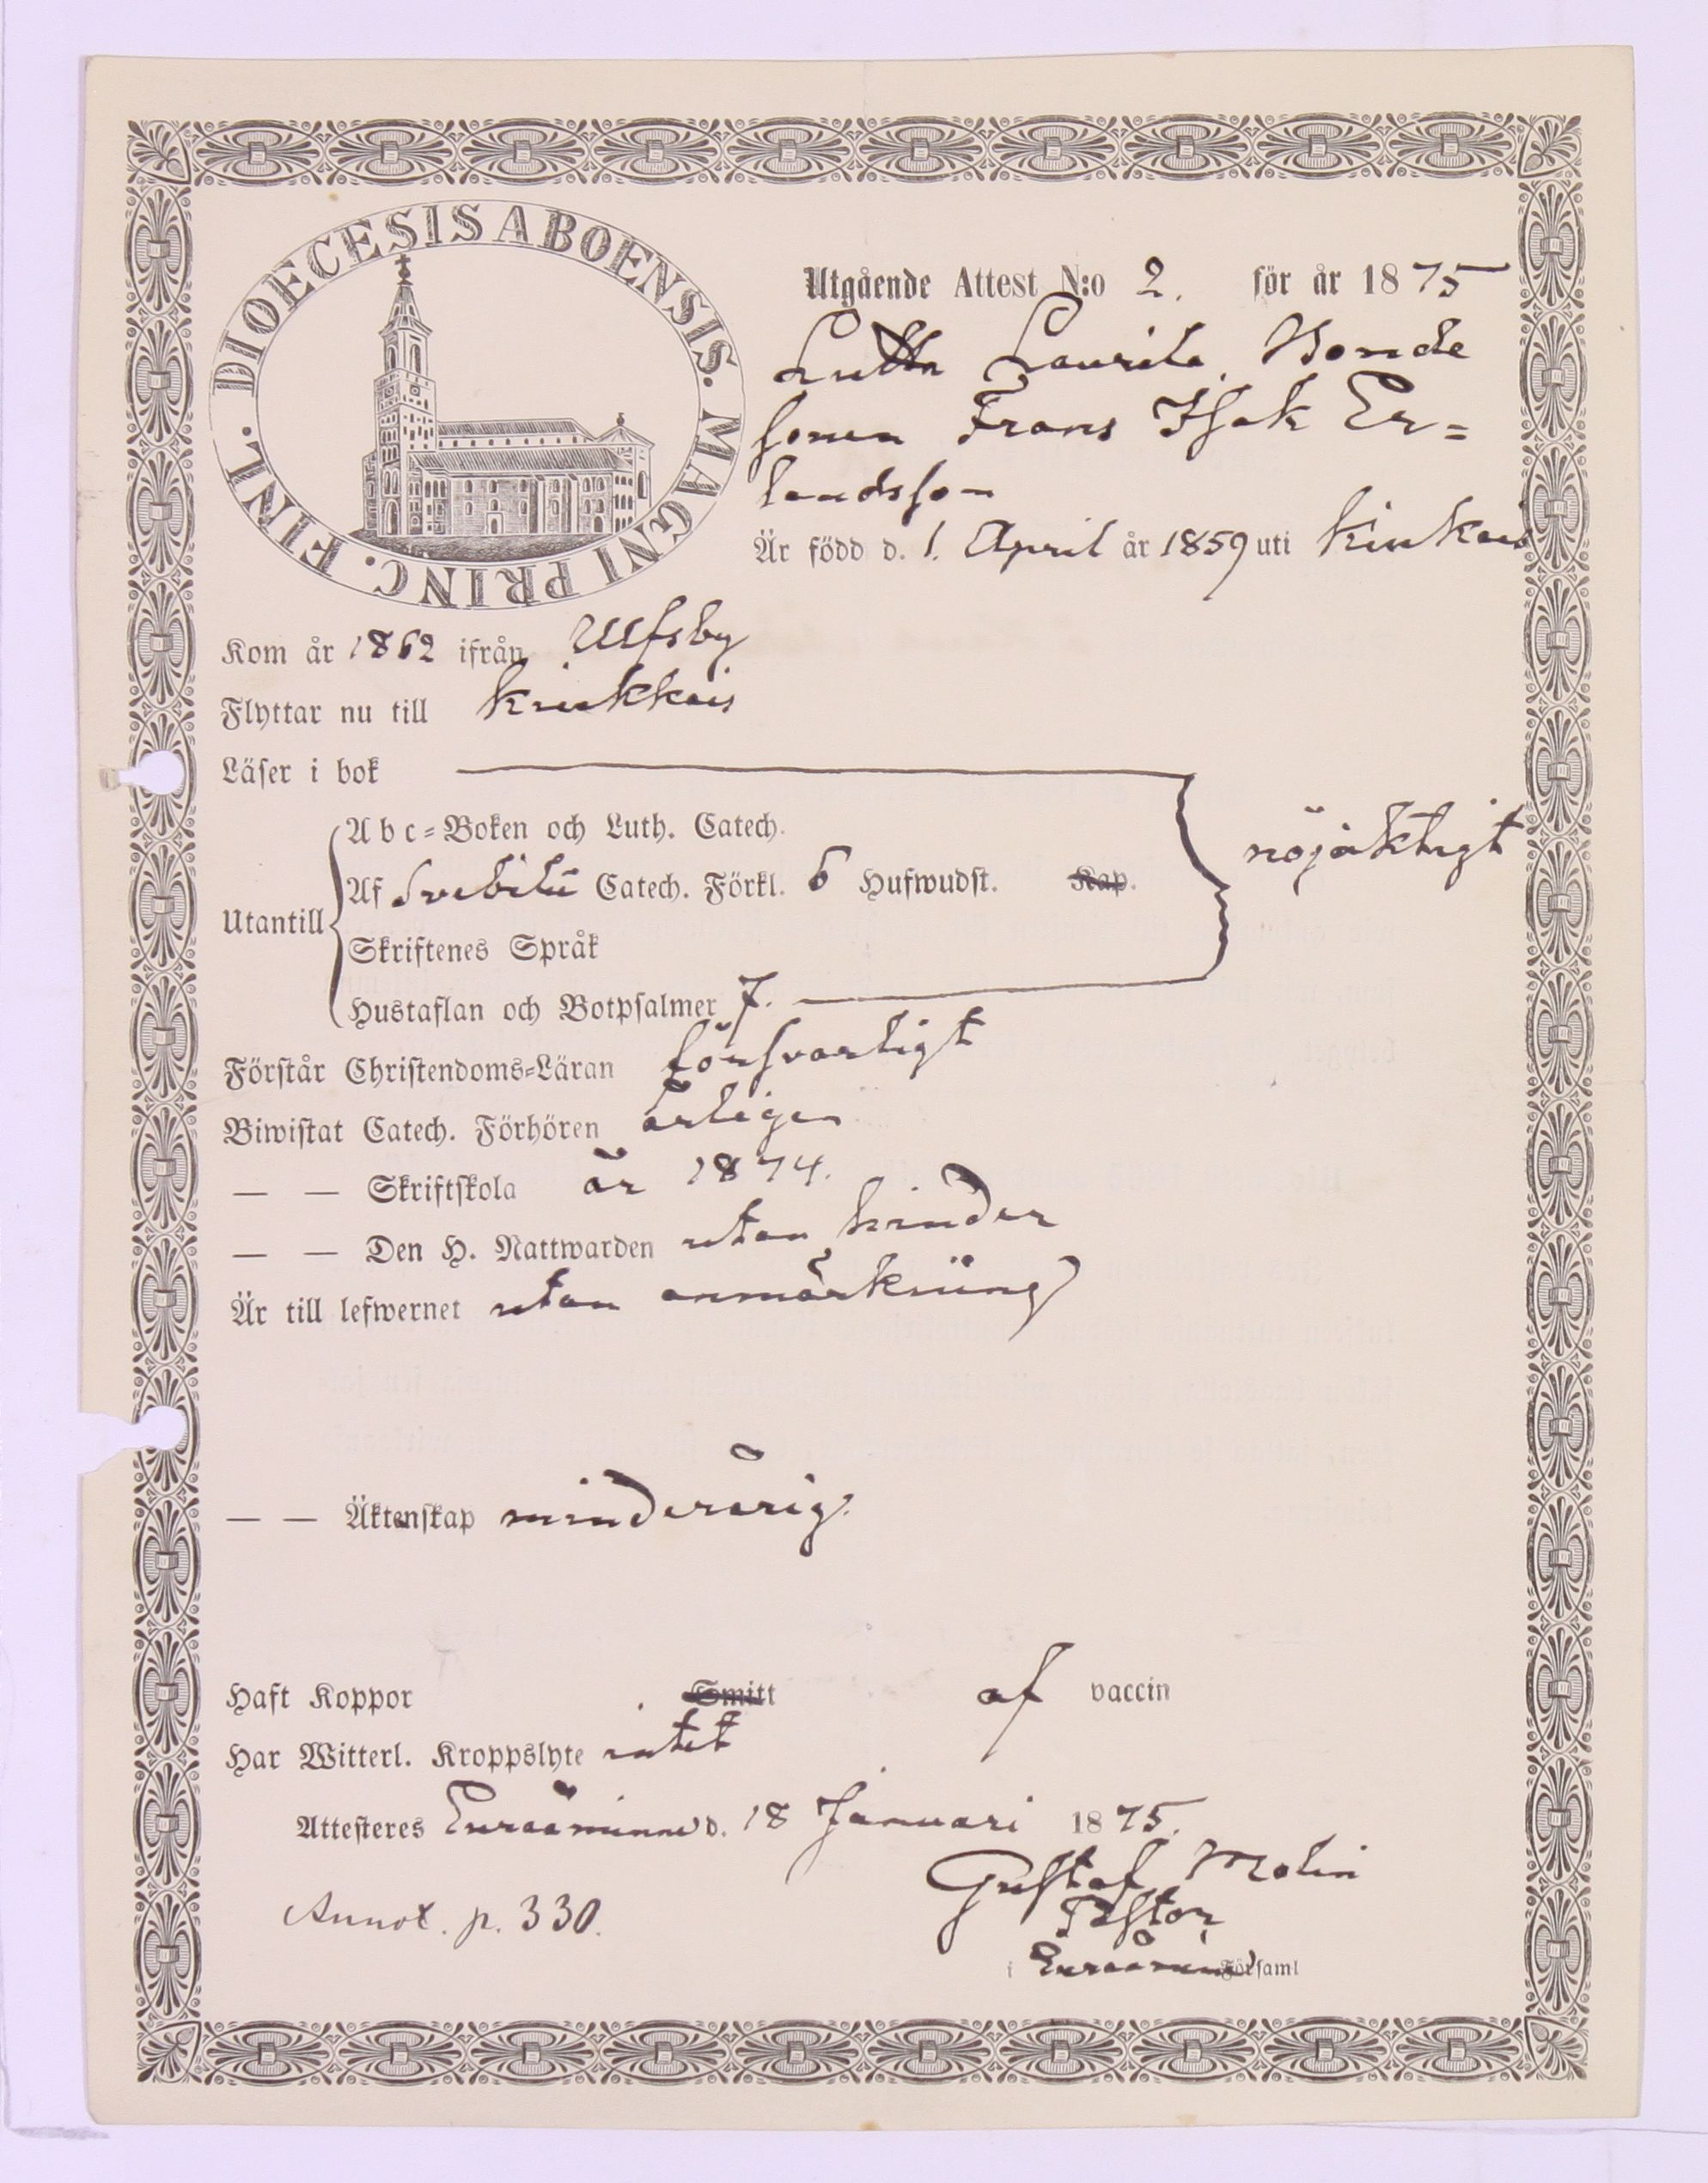 DIOECESIS ABOENSIS. MAGNI PRINC. FINL.
Utgående Attest N:o 2. för år 1875
Lutta Laurila Bonde
sonen Frans Isak Er=
landsson
Är född d. 1. April år 1859 uti Kiukais
Kom år 1862 ifrån Ulfsby
Flyttar nu till Kiukkais
Läser i bok
Abc=Boken och Luth. Catech.
nöjaktigt
Af Svebilii Catech. Förkl. 6 Hufwudst. Kap.
Utantill
Skriftenes Språk
Hustaflan och Botpsalmer 7.
Förstår Christendoms=Läran försvarligt
Biwistat Catech. Förhören årligen
— — Skriftskola år 1874.
— — Den H. Nattwarden utan hinder
Är till lefwernet utan anmärkning
— — Äktenskap minderårig.
Haft Koppor Smitt af vaccin
Har Witterl. Kroppslyte intet
Attesteres Euraåminne d. 18 Januari 1875.
Gustaf Molin
Annot. p. 330. Pastor
i Euraåminne Församl